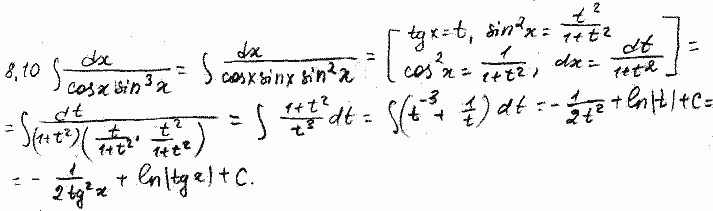 8.10 ∫ dx/(cosx sin³x) = ∫ dx/(cosx sinx sin²x) = [tgx = t, sin²x = t²/(1+t²), cos²x = 1/(1+t²), dx = dt/(1+t²)] =
= ∫ dt/((1+t²)(t/(1+t²) · t²/(1+t²))) = ∫ (1+t²)/t³ dt = ∫(t⁻³ + 1/t) dt = -1/(2t²) + ln|t| + C =
= - 1/(2tg²x) + ln|tgx| + C.